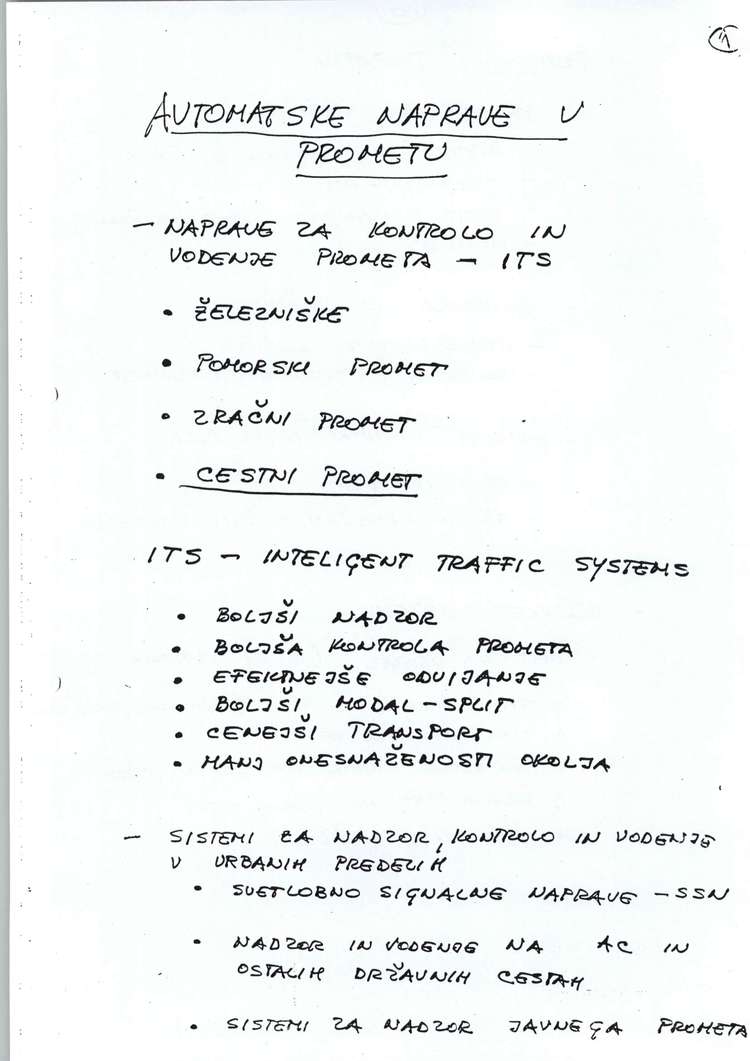 1
AVTOMATSKE NAPRAVE V
PROMETU
- NAPRAVE ZA KONTROLO IN
VODENJE PROMETA - ITS
• ŽELEZNIŠKE
• POMORSKI PROMET
• ZRAČNI PROMET
• CESTNI PROMET
ITS - INTELIGENT TRAFFIC SYSTEMS
• BOLJŠI NADZOR
• BOLJŠA KONTROLA PROMETA
• EFEKTNEJŠE ODVIJANJE
• BOLJŠI MODAL-SPLIT
• CENEJŠI TRANSPORT
• MANJ ONESNAŽENOSTI OKOLJA
- SISTEMI ZA NADZOR, KONTROLO IN VODENJE
V URBANIH PREDELIH
• SVETLOBNO SIGNALNE NAPRAVE - SSN
• NADZOR IN VODENJE NA AC IN
OSTALIH DRŽAVNIH CESTAH
• SISTEMI ZA NADZOR JAVNEGA PROMETA